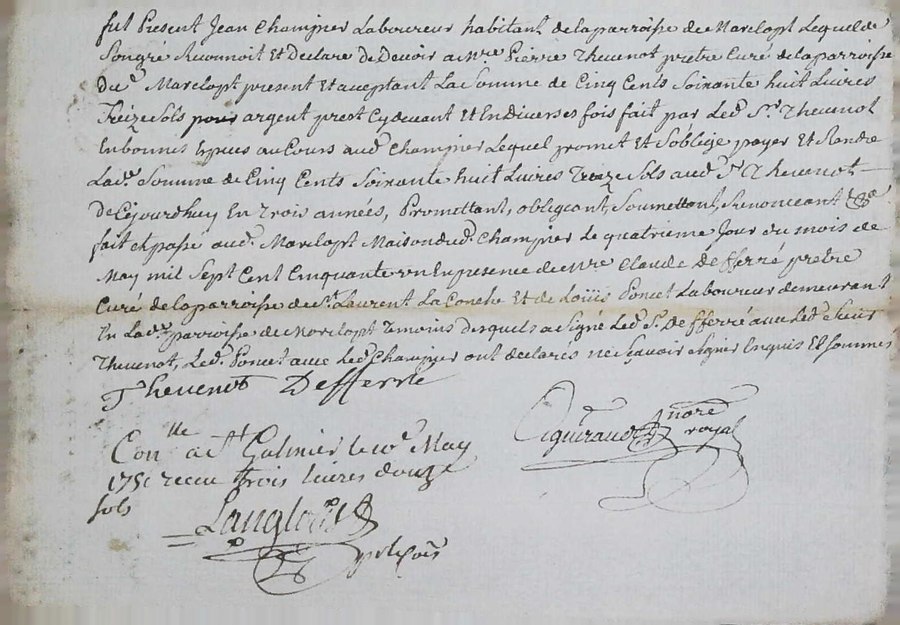 fut Present Jean Champier Laboureur habitant de la parroisse de Marclopt Lequel de
Songré Reconnoit Et Declare De Devoir a mre Pierre Thevenot pretre Curé de la parroisse
Dud. Marclopt present Et acceptant La Somme de Cinq Cents Soixante huit Livres
Treize Sols pour argent prest Cydevant Et En diverses fois fait par Led. Sr. Thevenot
En bonnes Espices au Cours aud. Champier Lequel promet Et S'oblige payer Et Rendre
Lad. Somme de Cinq Cents Soixante huit Livres Treize Sols aud. Sr. Thevenot
De Cejourdhuy En trois années, Promettant, obligeant, Soumettant, Renonceant &a
fait et passé aud. Marclopt Maison dud. Champier Le quatrieme Jour du mois de
May mil Sept Cent Cinquante un En presence de mre Claude Defferré pretre
Curé de la parroisse de St. Laurent La Conche Et de Loüis Poncet Laboureur demeurant
En Lad. parroisse de Marclopt Temoins desquels a Signé Led. Sr. Defferré avec Led. Sieur
Thevenot, Led. Poncet avec Led. Champier ont declarés ne Scavoir Signer Enquis Et Sommés
Thevenot Defferré
notre
royal
Conlle a St Galmier le 10e May
1751 receu trois livres douze
sols
Langlois